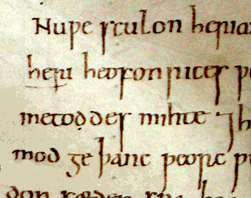 Nu ƿe sculon heria
heofon rices
metoddes mihte ⁊ h
mod ge þanc ƿeorc ƿ